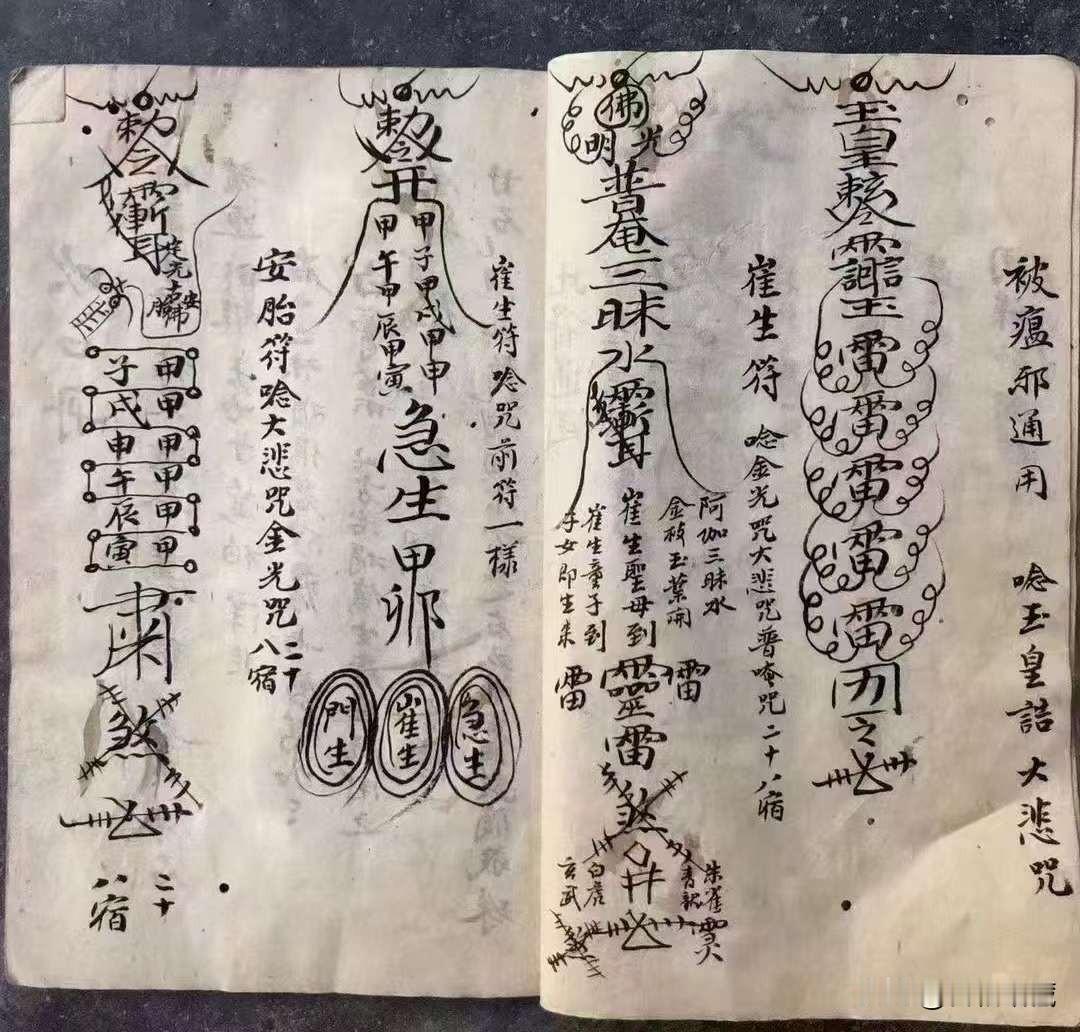 被瘟邪通用 唸玉皇誥大悲咒
玉皇敕令
雷雷雷雷雷
崔生符 唸金光咒大悲咒普唵咒二十八宿
佛光明
普庵三昧水
阿伽三昧水
金枝玉葉開
崔生聖母到
崔生童子到
子女即生来
雷靈雷
雷
煞
井
朱雀
青龍
白虎
玄武
崔生符唸咒前符一樣
敕令
开
甲子甲戌甲申
甲午甲辰甲寅
急生甲卯
急生
崔生
門生
安胎符唸大悲咒金光咒二十八宿
敕令
安胎
甲子
甲戌
甲申
甲午
甲辰
甲寅
肅
煞
二十八宿